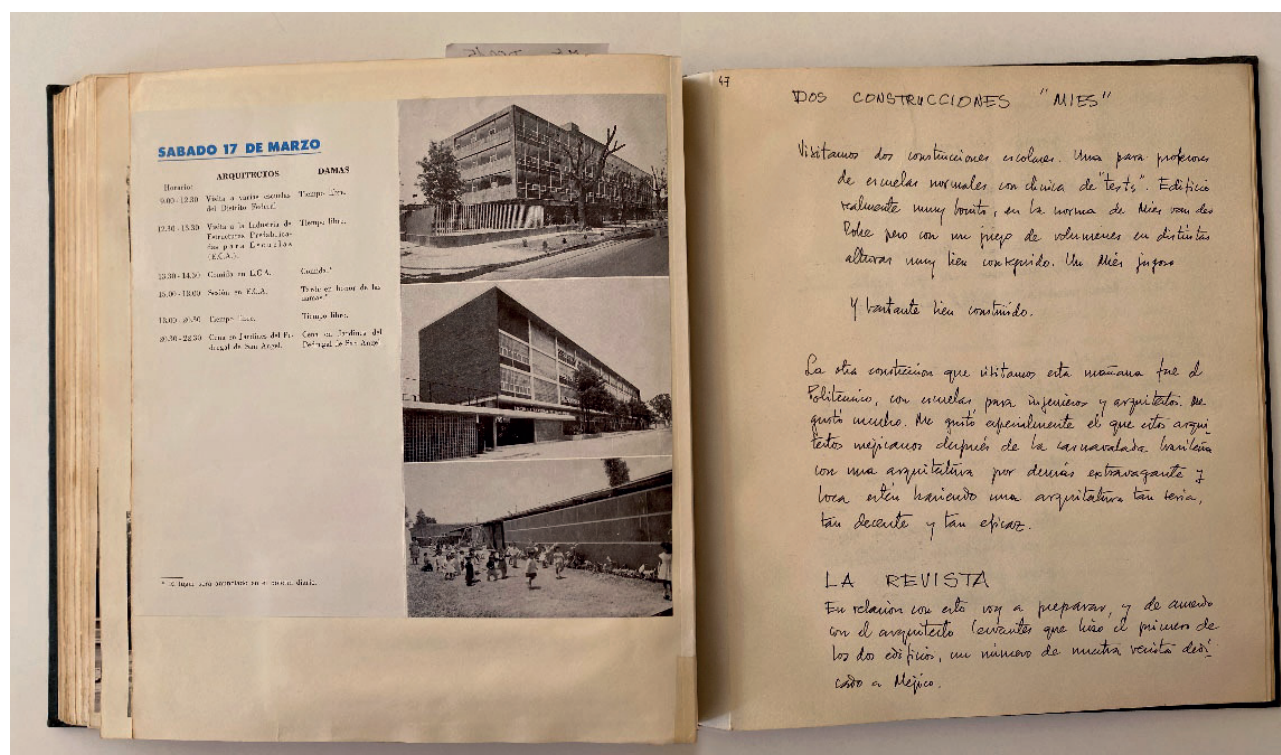 SABADO 17 DE MARZO
ARQUITECTOS DAMAS
Horario:
9.00 - 12.30 Visita a varias escuelas del Distrito Federal. Tiempo libre.
12.30 - 13.30 Visita a la Industria de Estructuras Prefabricadas para Escuelas (E.C.A.). Tiempo libre.
13.30 - 14.30 Comida en E.C.A. Comida.*
15.00 - 18.00 Sesión en E.C.A. Tarde en honor de las damas.*
18.00 - 20.30 Tiempo libre. Tiempo libre.
20.30 - 22.30 Cena en Jardines del Pedregal de San Angel. Cena en Jardines del Pedregal de San Angel.
* El lugar será anunciado en el boletín diario.
47
DOS CONSTRUCCIONES "MIES"
Visitamos dos construcciones escolares. Una para profesores
de escuelas normales con clínica de "tests". Edificio
realmente muy bonito, en la norma de Mies van der
Rohe pero con un juego de volumenes en distintas
alturas muy bien conseguido. Un Mies jugoso
Y bastante bien construido.
La otra construccion que visitamos esta mañana fue el
Politecnico, con escuelas para ingenieros y arquitectos. Me
gustó mucho. Me gustó especialmente el que estos arqui
tectos mejicanos después de la carnavalada brasileña
con una arquitectura por demás extravagante y
loca estén haciendo una arquitectura tan seria,
tan decente y tan eficaz.
LA REVISTA
En relacion con esto voy a preparar, y de acuerdo
con el arquitecto Cervantes que hizo el primero de
los dos edificios, un número de nuestra revista dedi-
cado a Méjico.